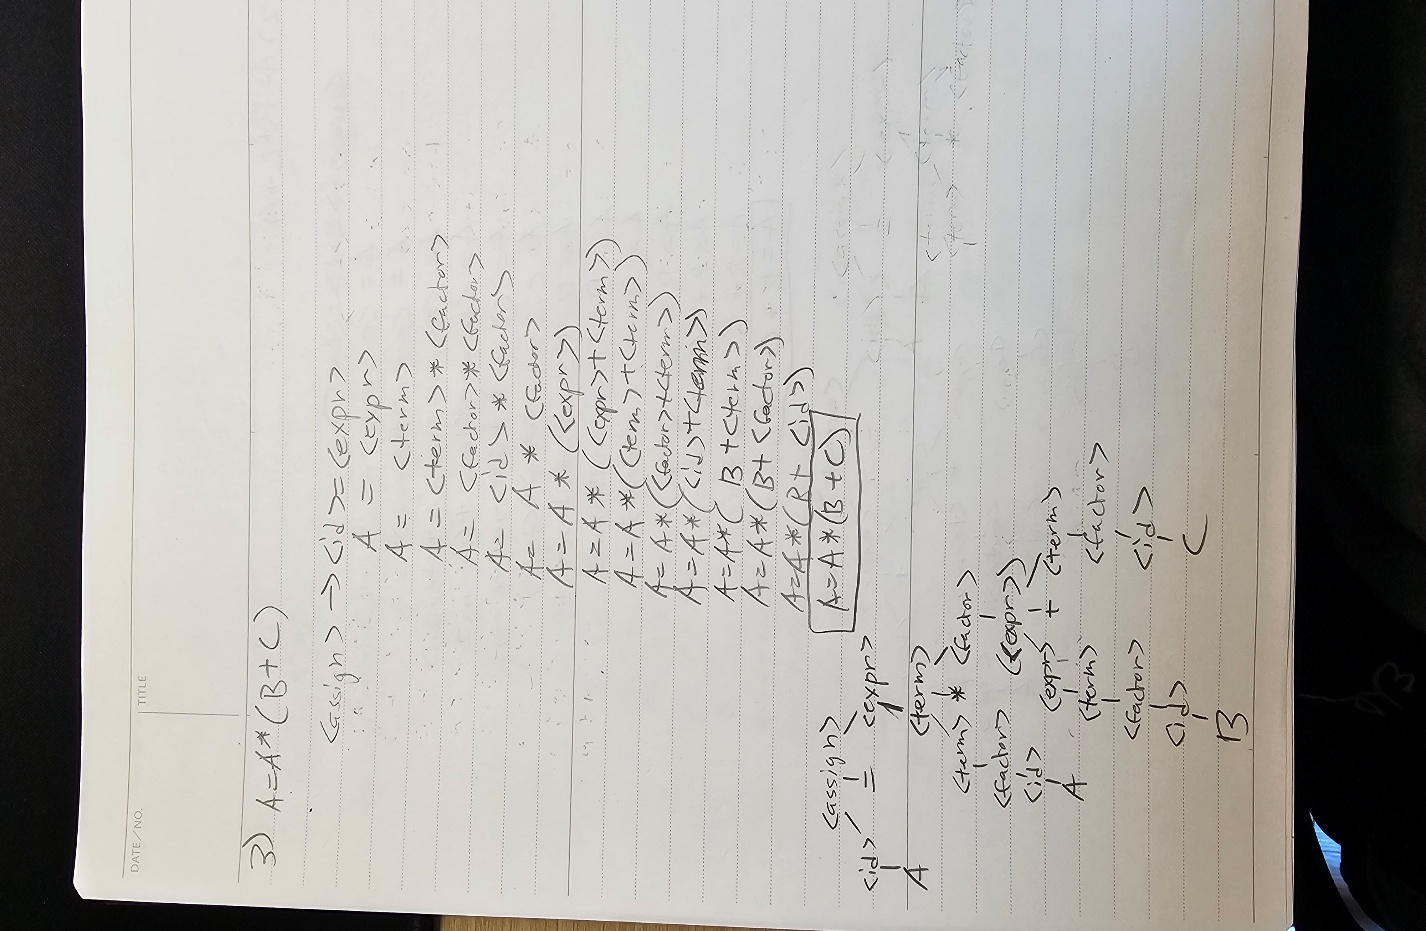 TITLE
DATE/NO.
3) A=A*(B+C)
<assign> → <id>=<expr>
A = <expr>
A = <term>
A=<term>*<factor>
A= <factor>*<factor>
A= <id>*<factor>
A= A * <factor>
A=A * (<expr>)
A=A * (<expr>+<term>)
A=A*(<term>+<term>)
A=A*(<factor>+<term>)
A=A*(<id>+<term>)
A=A*( B+<term>)
A=A*(B+<factor>)
A=A*(B+ <id>)
A=A*(B+C)
<assign>
<id> = <expr>
A <term>
<term> * <factor>
<factor> (<expr>)
<id> <expr> + <term>
A <term> <factor>
<factor> <id>
<id> C
B